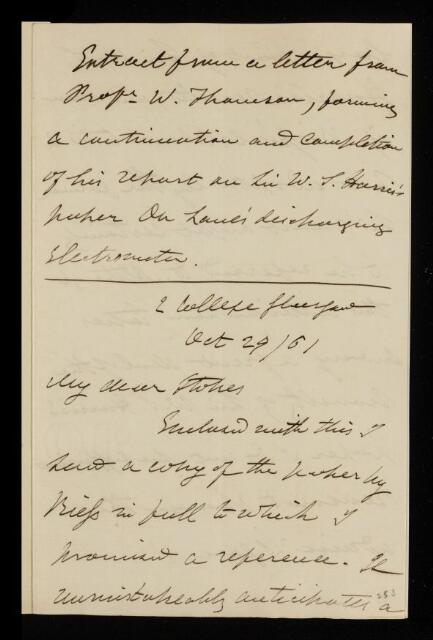 Extract from a letter from
Profr. W. Thomson, forming
a continuation and completion
of his report on Sir W. S. Harris's
paper On Lane's discharging
Electrometer.
2 College Glasgow
Oct 29/61
My dear Stokes
Enclosed with this I
send a copy of the paper by
Riess in full to which I
promised a reference. It
unmistakeably anticipates a